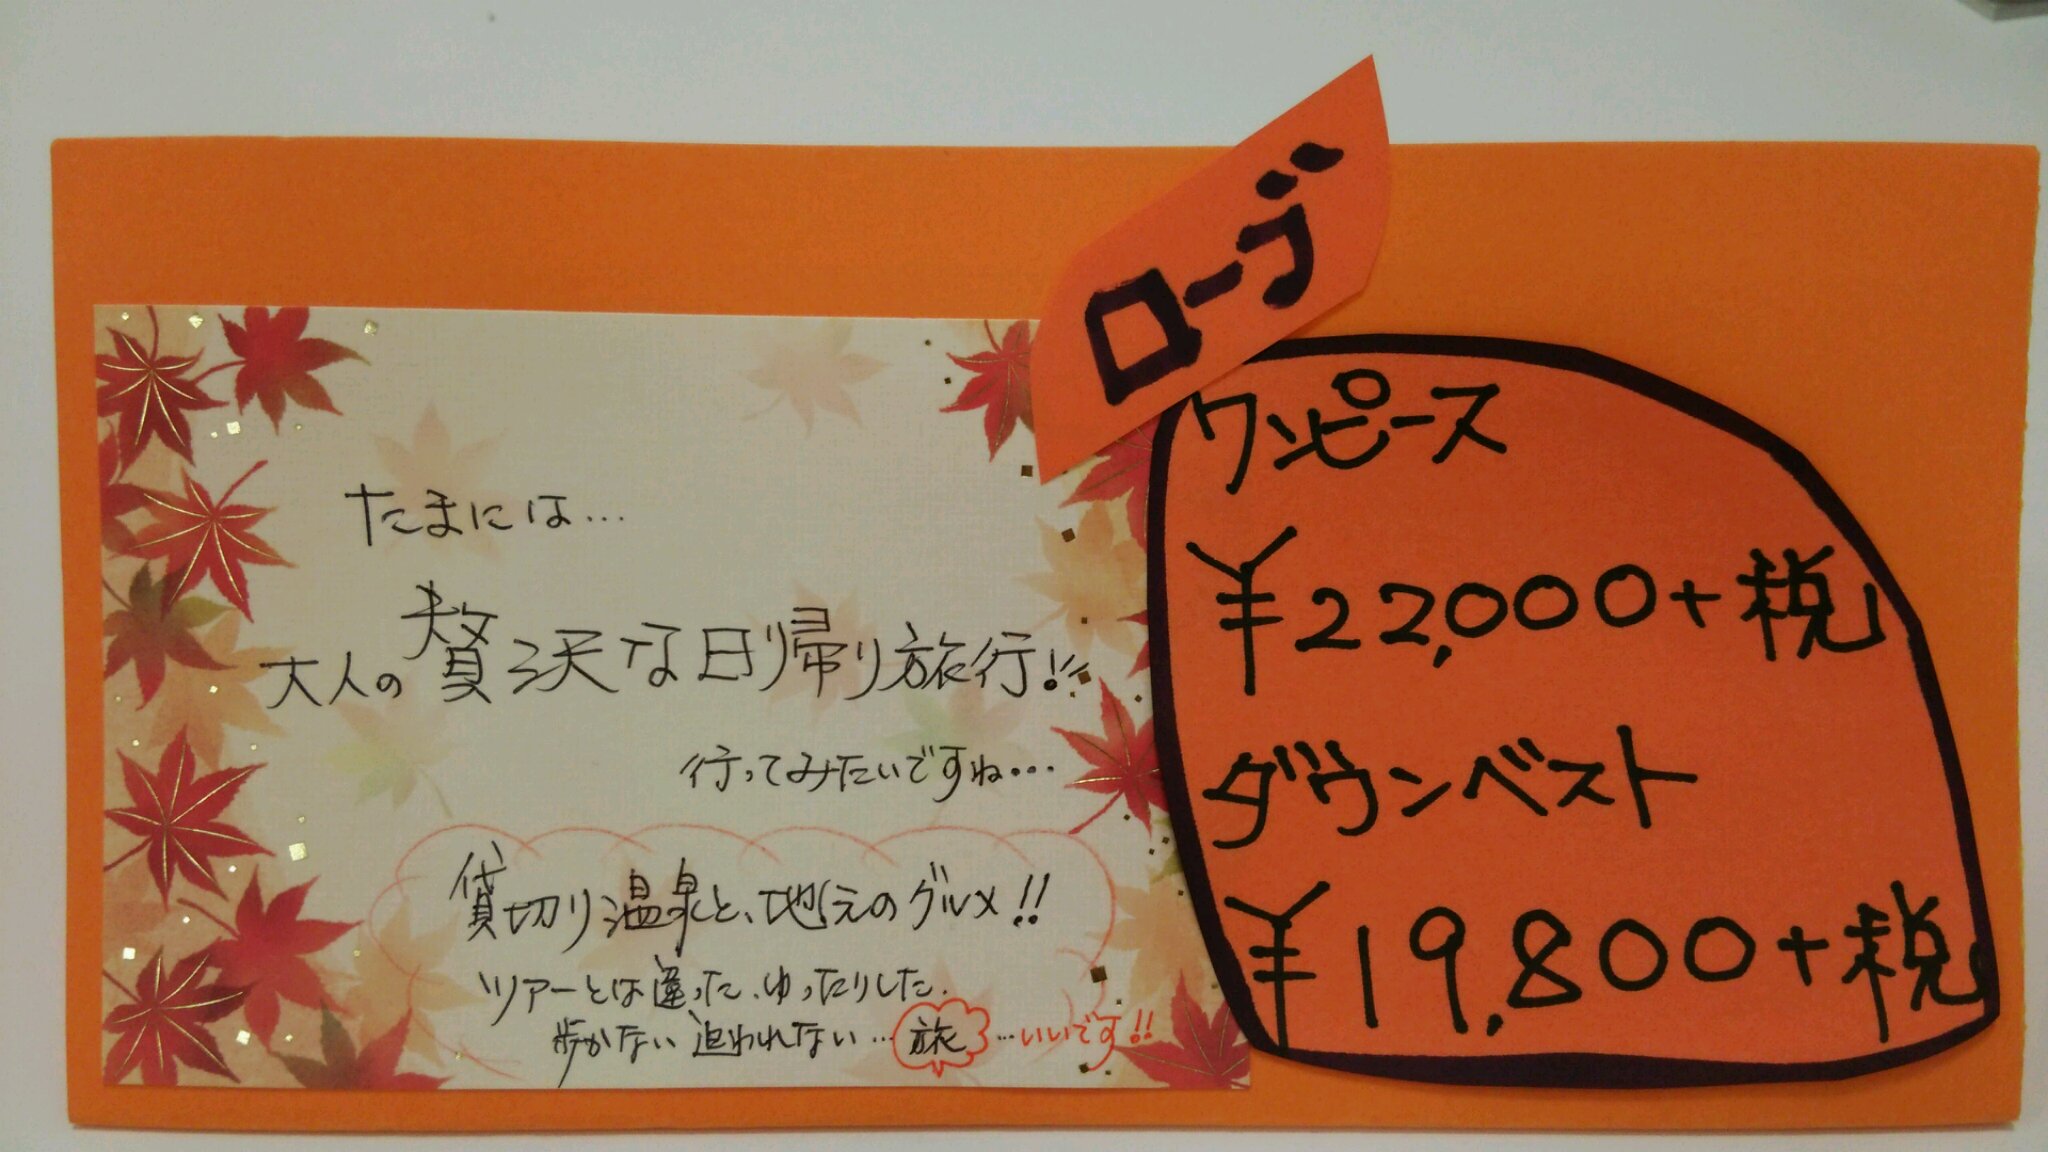 たまには…
大人の贅沢な日帰り旅行!!
行ってみたいですね…
貸切り温泉と、地元のグルメ!!
ツアーとは違った、ゆったりした、
歩かない 追われない…旅…いいです!!
ローブ
ワンピース
¥22,000+税
ダウンベスト
¥19,800+税